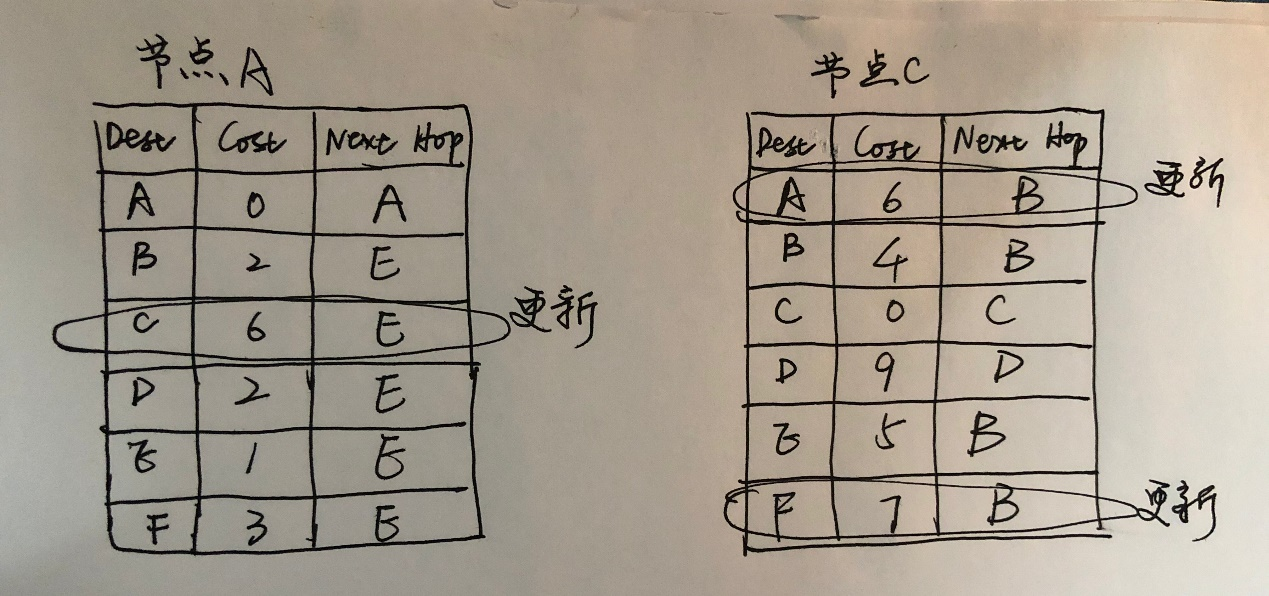 节点A
Dest Cost Next Hop
A 0 A
B 2 E
C 6 E 更新
D 2 E
E 1 E
F 3 E
节点C
Dest Cost Next Hop
A 6 B 更新
B 4 B
C 0 C
D 9 D
E 5 B
F 7 B 更新